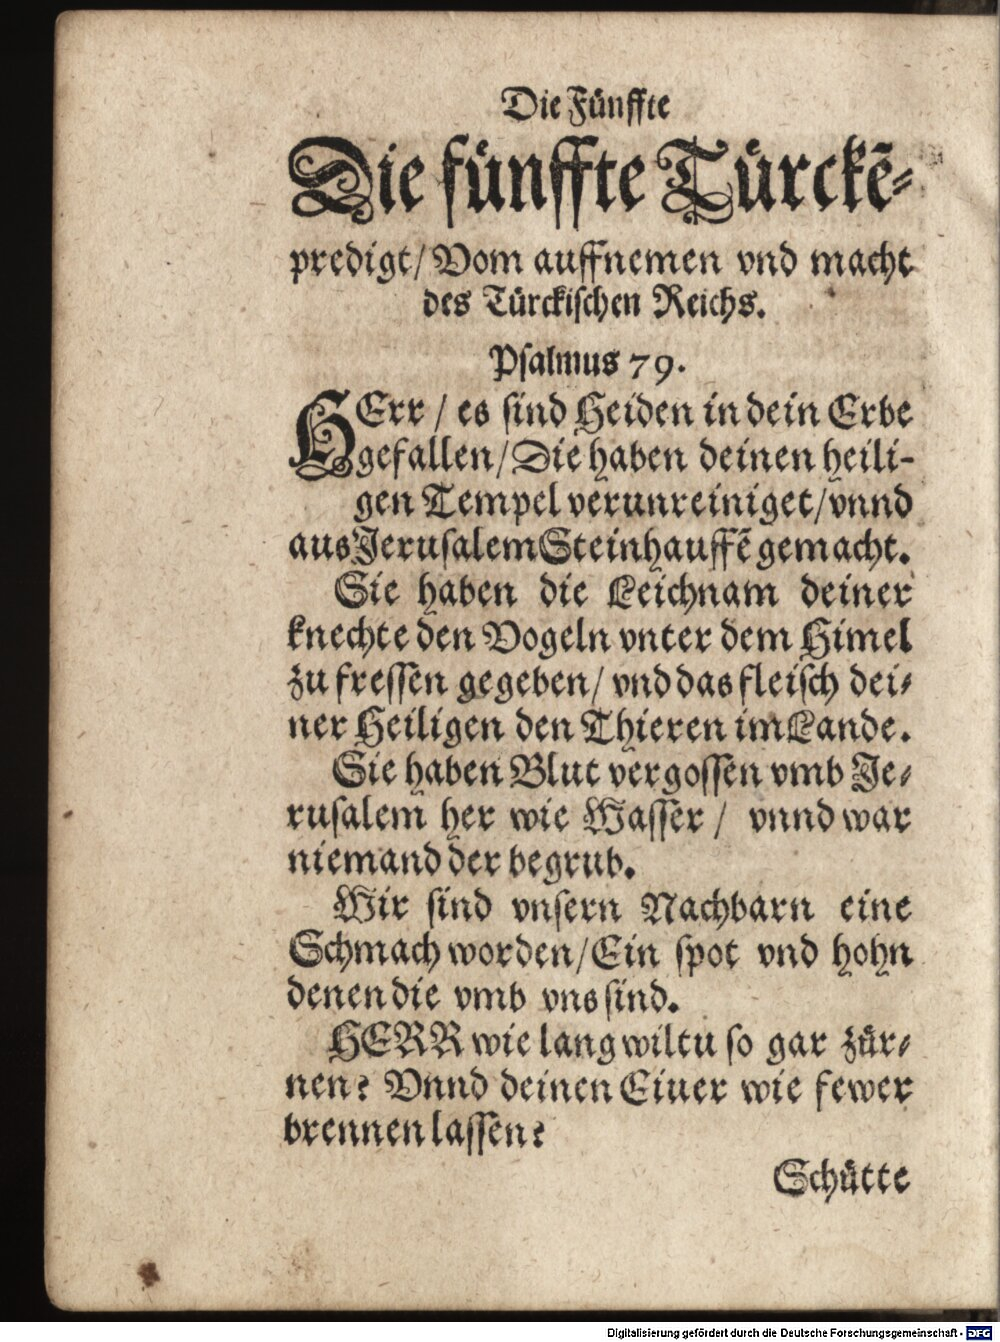 Die Fünffte
Die fünffte Türckẽ-
predigt/ Vom auffnemen vnd macht
des Türckischen Reichs.
Psalmus 79.
HErr / es sind Heiden in dein Erbe
gefallen/ Die haben deinen heili-
gen Tempel verunreiniget/ vnnd
aus Jerusalem Steinhauffẽ gemacht.
Sie haben die Leichnam deiner
knechte den Vogeln vnter dem Himel
zu fressen gegeben/ vnd das fleisch dei-
ner Heiligen den Thieren im Lande.
Sie haben Blut vergossen vmb Je-
rusalem her wie Wasser / vnnd war
niemand der begrub.
Wir sind vnsern Nachbarn eine
Schmach worden/ Ein spot vnd hohn
denen die vmb vns sind.
HERR wie lang wiltu so gar zür-
nen? Vnnd deinen Eiuer wie fewer
brennen lassen?
Schütte
Digitalisierung gefördert durch die Deutsche Forschungsgemeinschaft - DFG